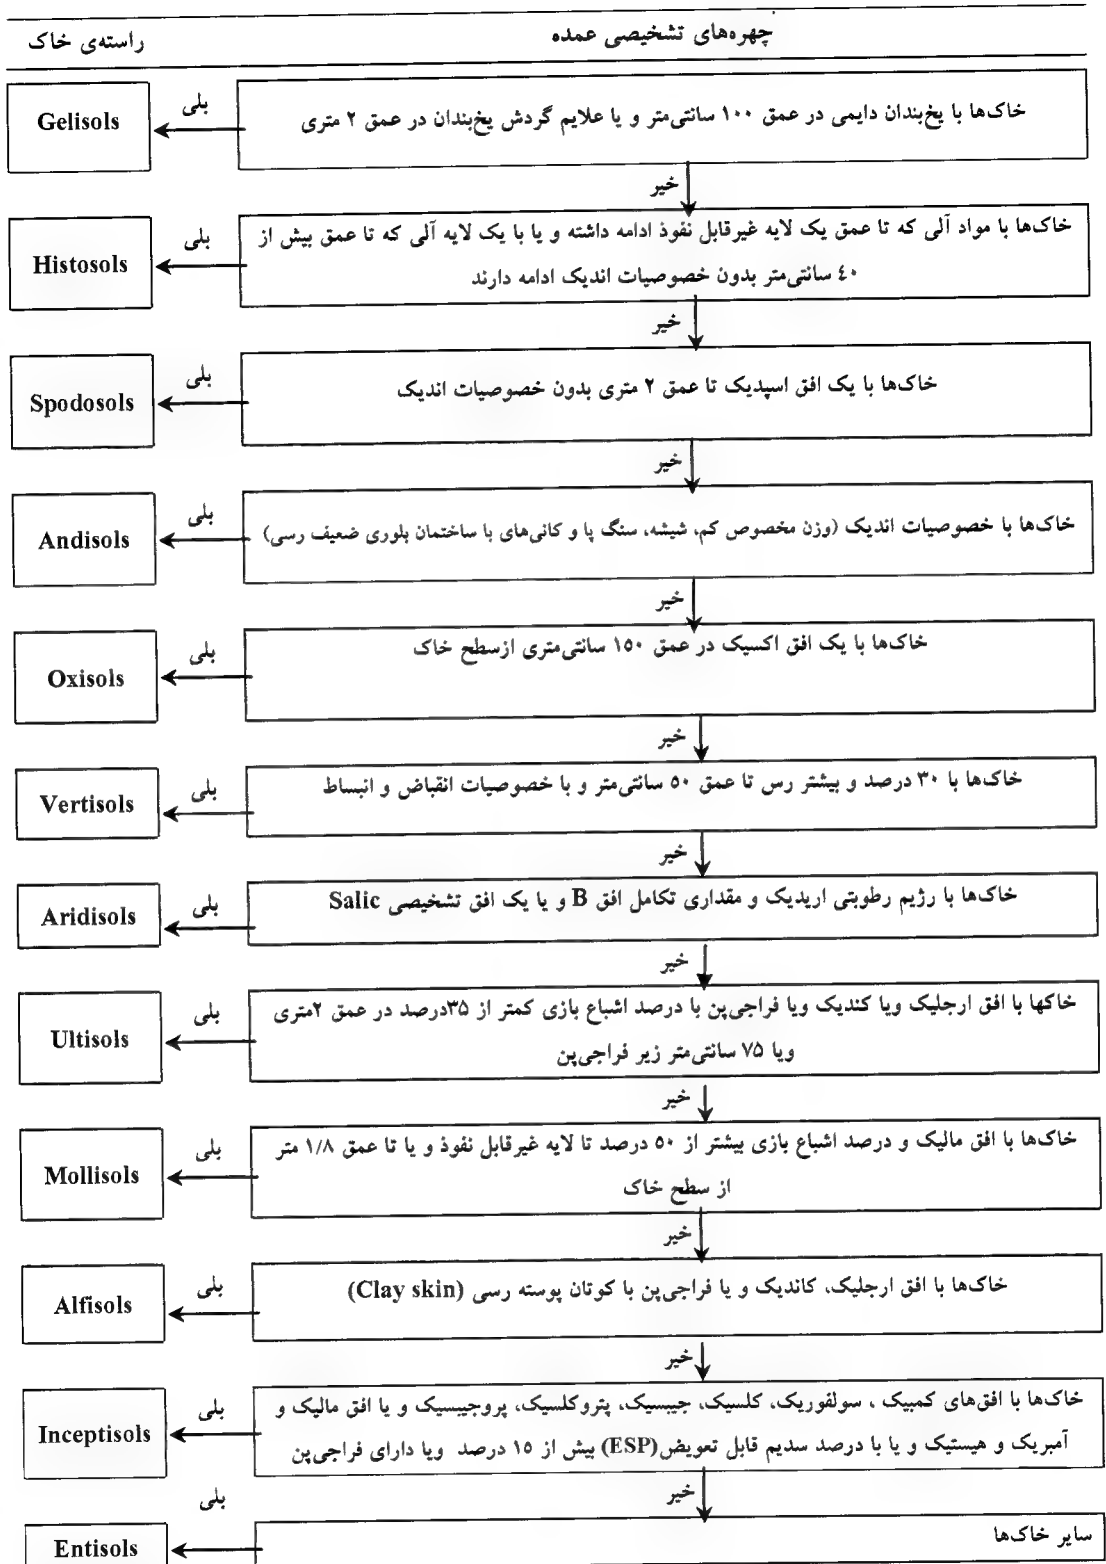 چهره‌های تشخیصی عمده
راسته‌ی خاک
خاک‌ها با یخ‌بندان دایمی در عمق ۱۰۰ سانتی‌متر و یا علایم گردش یخ‌بندان در عمق ۲ متری
بلی
Gelisols
خیر
خاک‌ها با مواد آلی که تا عمق یک لایه غیرقابل نفوذ ادامه داشته و یا با یک لایه آلی که تا عمق بیش از
۴۰ سانتی‌متر بدون خصوصیات اندیک ادامه دارند
بلی
Histosols
خیر
خاک‌ها با یک افق اسپدیک تا عمق ۲ متری بدون خصوصیات اندیک
بلی
Spodosols
خیر
خاک‌ها با خصوصیات اندیک (وزن مخصوص کم، شیشه، سنگ پا و کانی‌های با ساختمان بلوری ضعیف رسی)
بلی
Andisols
خیر
خاک‌ها با یک افق اکسیک در عمق ۱۵۰ سانتی‌متری ازسطح خاک
بلی
Oxisols
خیر
خاک‌ها با ۳۰ درصد و بیشتر رس تا عمق ۵۰ سانتی‌متر و با خصوصیات انقباض و انبساط
بلی
Vertisols
خیر
خاک‌ها با رژیم رطوبتی اریدیک و مقداری تکامل افق B و یا یک افق تشخیصی Salic
بلی
Aridisols
خیر
خاکها با افق ارجلیک ویا کندیک ویا فراجی‌پن با درصد اشباع بازی کمتر از ۳۵درصد در عمق ۲متری
ویا ۷۵ سانتی‌متر زیر فراجی‌پن
بلی
Ultisols
خیر
خاک‌ها با افق مالیک و درصد اشباع بازی بیشتر از ۵۰ درصد تا لایه غیرقابل نفوذ و یا تا عمق ۱/۸ متر
از سطح خاک
بلی
Mollisols
خیر
خاک‌ها با افق ارجلیک، کاندیک و یا فراجی‌پن با کوتان پوسته رسی (Clay skin)
بلی
Alfisols
خیر
خاک‌ها با افق‌های کمبیک ، سولفوریک، کلسیک، جیبسیک، پتروکلسیک، پروجیبسیک و یا افق مالیک و
آمبریک و هیستیک و یا با درصد سدیم قابل تعویض(ESP) بیش از ۱۵ درصد ویا دارای فراجی‌پن
بلی
Inceptisols
خیر
سایر خاک‌ها
بلی
Entisols